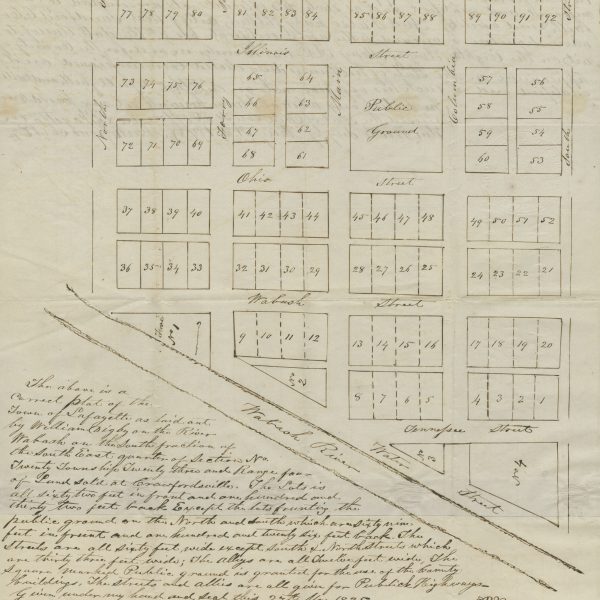 77 78 79 80 81 82 83 84 85 86 87 88 89 90 91 92
Illinois Street
73 74 75 76 65 64 57 56
66 63 58 55
72 71 70 69 67 62 59 54
68 61 60 53
North
Ferry
Main
Public
Ground
Columbia
South
Ohio Street
37 38 39 40 41 42 43 44 45 46 47 48 49 50 51 52
36 35 34 33 32 31 30 29 28 27 26 25 24 23 22 21
Wabash Street
No 1
9 10 11 12 13 14 15 16 17 18 19 20
No 2
8 7 6 5 4 3 2 1
Tennessee Street
Wabash River
Water Street
No 3
No 4
The above is a
Correct plat of the
Town of Lafayette as laid out
by William Digby on the River
Wabash on the South fraction of
the South East quarter of Section No.
Twenty Township Twenty three and Range four
of Land sold at Crawfordsville. The Lots is
all sixty two feet in front and one hundred and
twenty two feet back except the lots fronting the
public ground on the North and South which are sixty nine
feet in front and one hundred and twenty six feet back The
Streets are all sixty feet wide except South & North Streets which
are thirty three feet wide; The Alleys are all Twelve feet wide, The
Square marked Public ground is granted for the use of the County
Buildings. The Streets and Allies are all given for Publick Highways
Given under my hand and seal this 1825